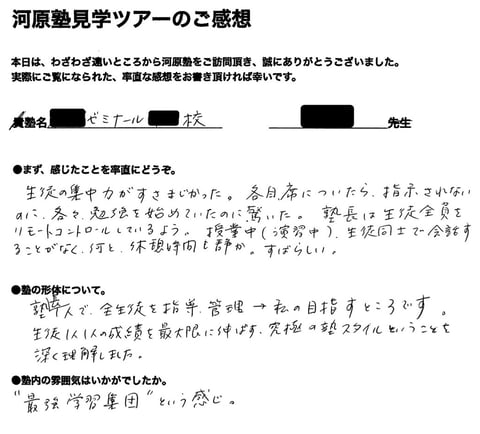 河原塾見学ツアーのご感想
本日は、わざわざ遠いところから河原塾をご訪問頂き、誠にありがとうございました。
実際にご覧になられた、率直な感想をお書き頂ければ幸いです。
貴塾名 ゼミナール 校 先生
●まず、感じたことを率直にどうぞ。
生徒の集中力がすさまじかった。各自、席についたら、指示されない
のに、各々、勉強を始めていたのに驚いた。塾長は生徒全員を
リモートコントロールしているよう。授業中(演習中)、生徒同士で会話す
ることがなく、何と、休憩時間も静か。すばらしい。
●塾の形体について。
塾長1人で、全生徒を指導、管理→私の目指すところです。
生徒1人1人の成績を最大限に伸ばす、究極の塾スタイルということを
深く理解しました。
●塾内の雰囲気はいかがでしたか。
"最強学習集団"という感じ。